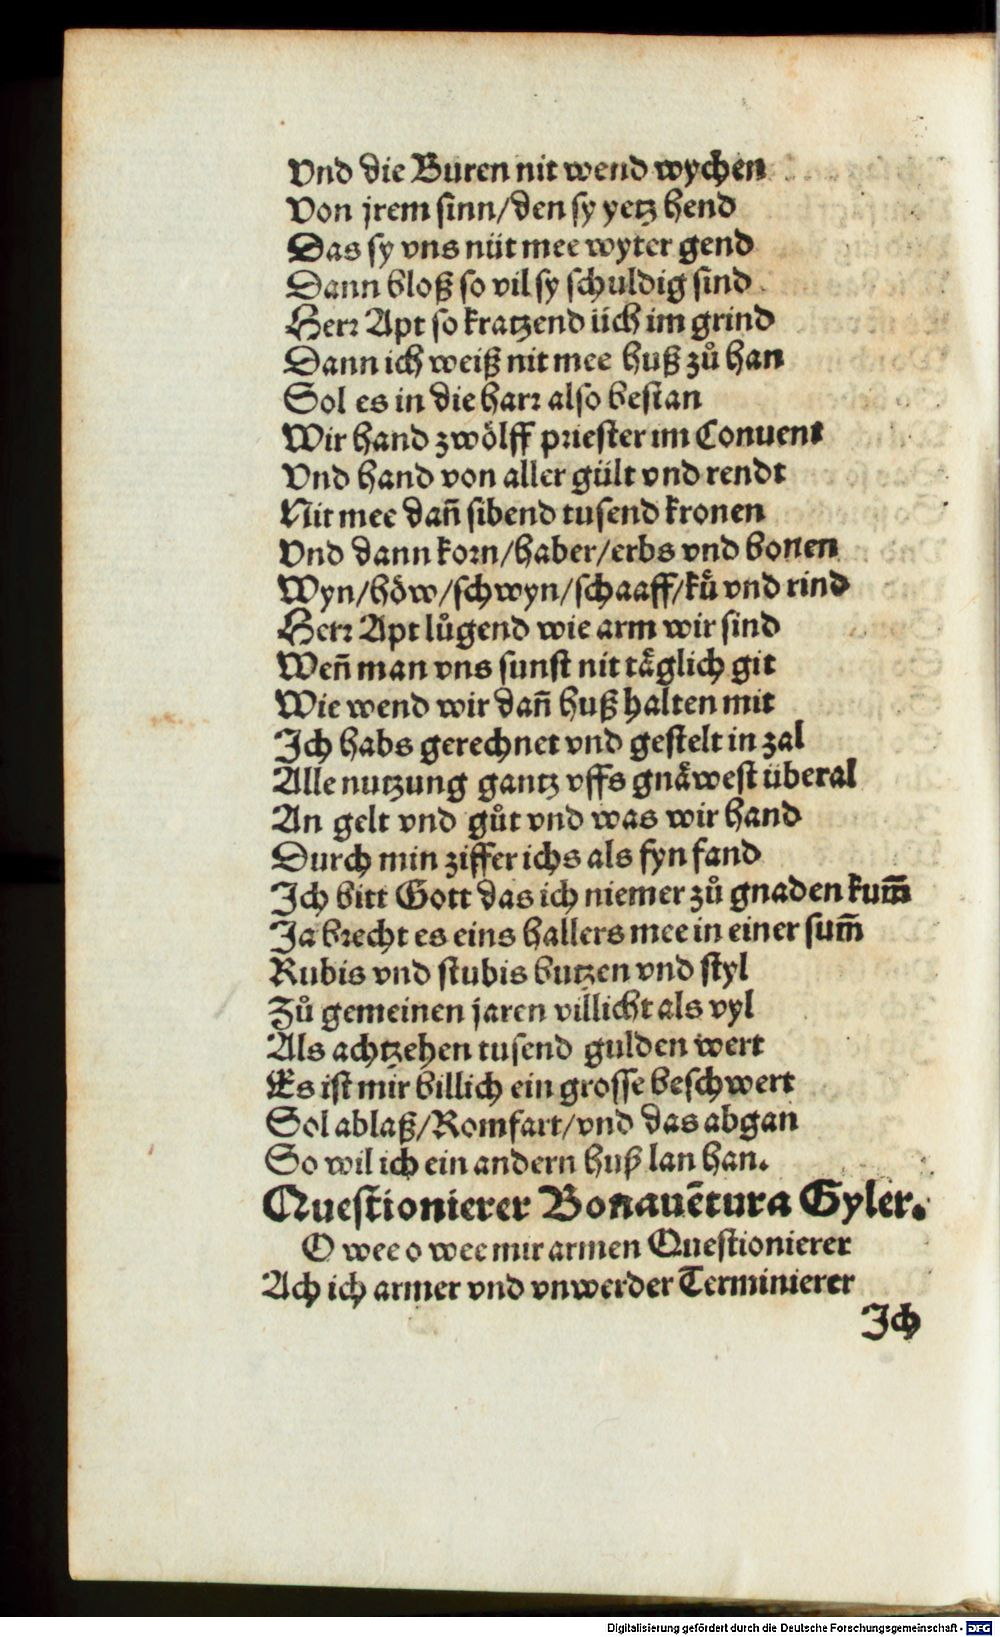 Vnd die Buren nit wend wychen
Von jrem sinn/den sy yetz hend
Das sy vns nüt mee wyter gend
Dann bloß so vil sy schuldig sind
Herr Apt so kratzend üch im grind
Dann ich weiß nit mee huß zů han
Sol es in die harr also bestan
Wir hand zwölff priester im Conuent
Vnd hand von aller gült vnd rendt
Nit mee dañ sibend tusend kronen
Vnd dann korn/haber/erbs vnd bonen
Wyn/höw/schwyn/schaaff/kuͤ vnd rind
Herr Apt lůgend wie arm wir sind
Weñ man vns sunst nit taͤglich git
Wie wend wir dañ huß halten mit
Ich habs gerechnet vnd gestelt in zal
Alle nutzung gantz vffs gnaͤwest überal
An gelt vnd gůt vnd was wir hand
Durch min ziffer ichs als fyn fand
Ich bitt Gott das ich niemer zů gnaden kum̃
Ja brecht es eins hallers mee in einer sum̃
Rubis vnd stubis butzen vnd styl
Zů gemeinen jaren villicht als vyl
Als achtzehen tusend gulden wert
Es ist mir billich ein grosse beschwert
Sol ablaß/Romfart/vnd das abgan
So wil ich ein andern huß lan han.
Questionierer Bonauẽtura Gyler.
O wee o wee mir armen Questionierer
Ach ich armer vnd vnwerder Terminierer
Ich
Digitalisierung gefördert durch die Deutsche Forschungsgemeinschaft - DFG